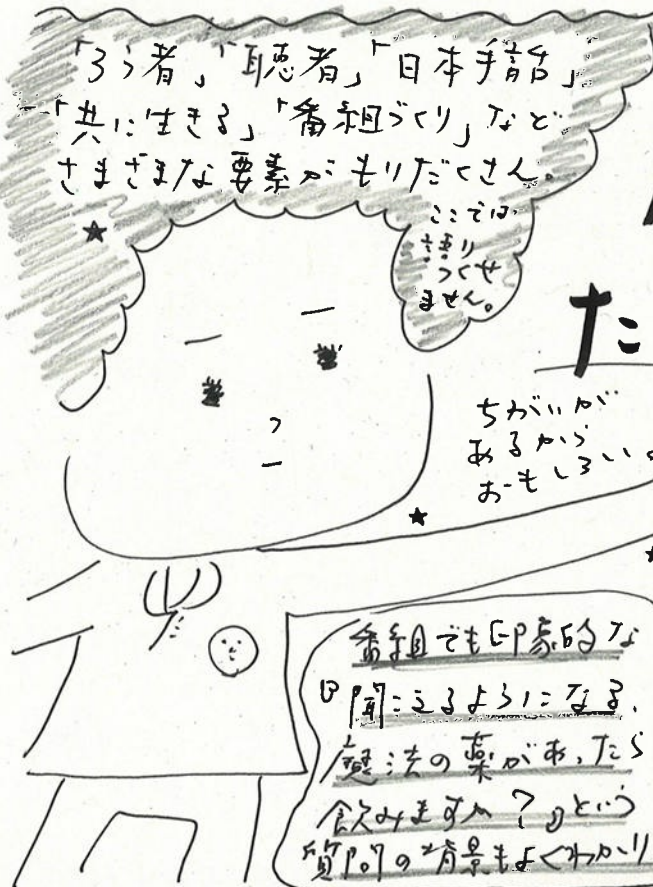 「ろう者」「聴者」「日本手話」
「共に生きる」「番組づくり」など
さまざまな要素がもりだくさん。
ここでは
語り
つくせ
ません。
た
ちがいが
あるから
おもしろい。
番組でも印象的な
『聞こえるようになる
魔法の薬があったら
飲みますか?』という
質問の背景もよくわかり